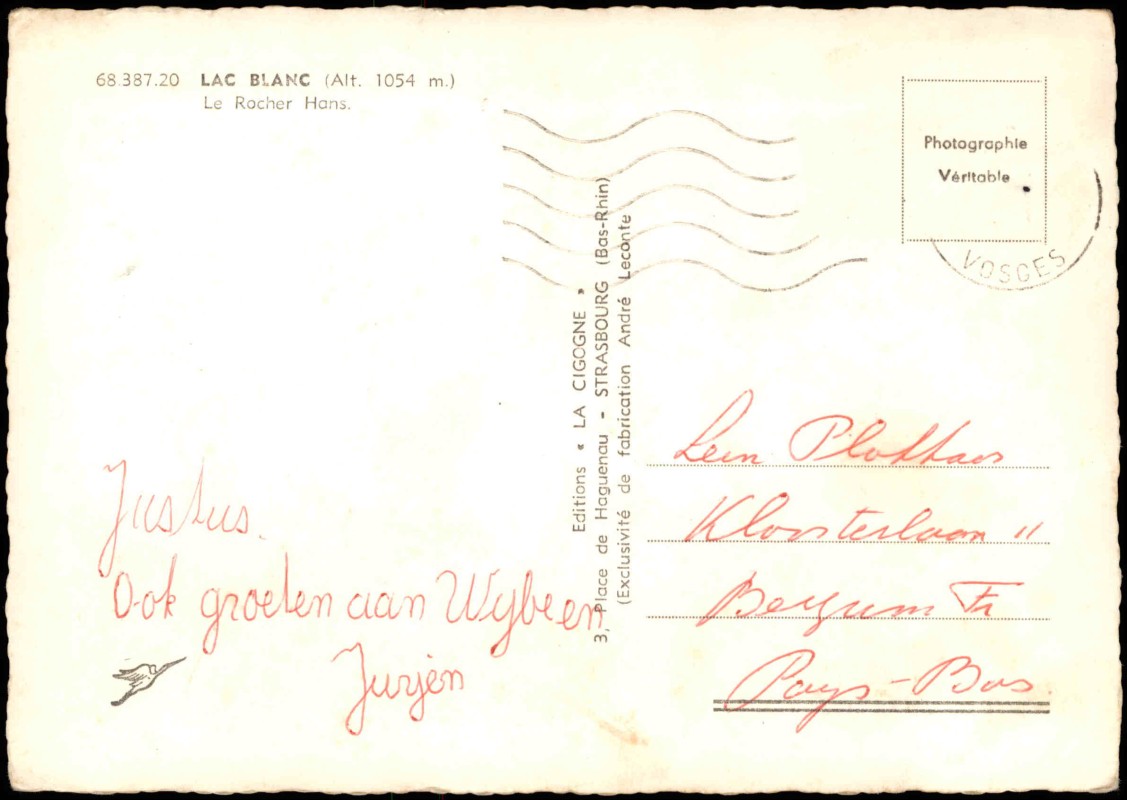 68.387.20 LAC BLANC (Alt. 1054 m.)
Le Rocher Hans.
Photographie
Véritable
VOSGES
Editions « LA CIGOGNE »
3, Place de Haguenau - STRASBOURG (Bas-Rhin)
(Exclusivité de fabrication André Leconte
Justus.
Ook groeten aan Wijbe en
Jurjèn
Lein
Kloosterlaan 11
Bergum Fr
Pays-Bas.